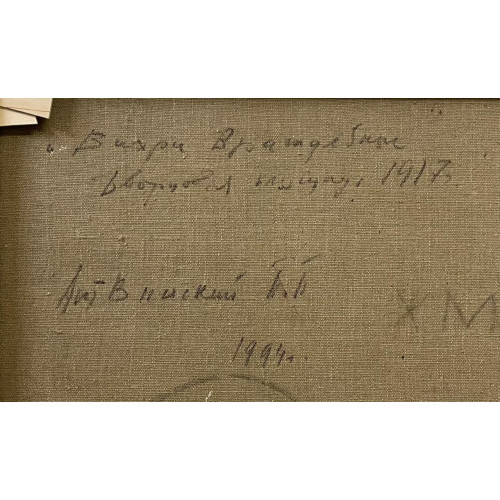 „Вихри Враждебные
Дворцовая площадь 1917г.
Литвинский П.П
1994г.
ХМ